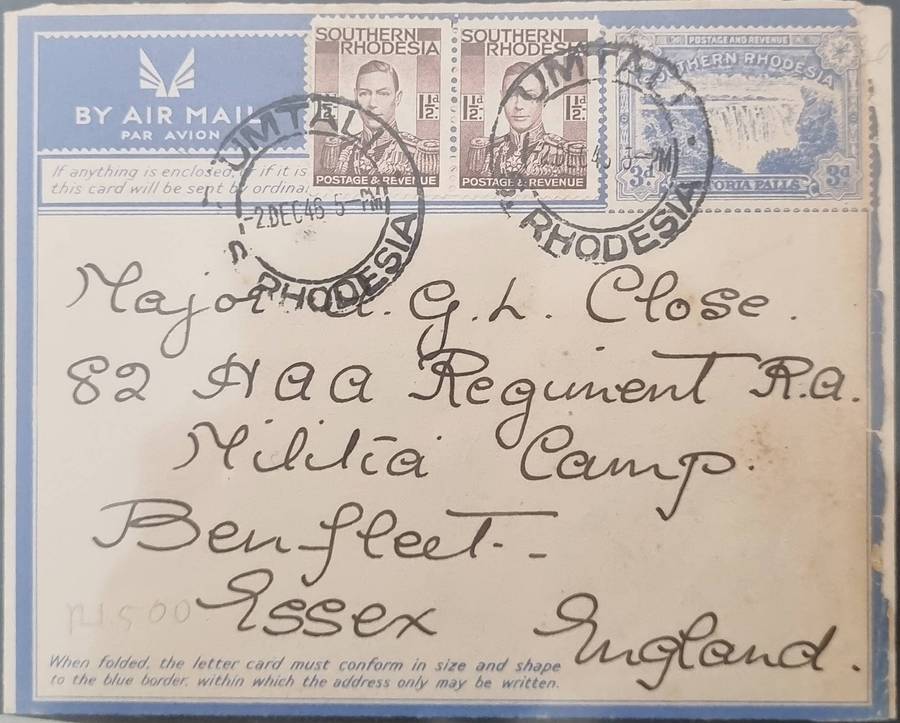 BY AIR MAIL
PAR AVION
If anything is enclosed, or if it is
this card will be sent by ordina
SOUTHERN
RHODESIA
1½d.
POSTAGE & REVENUE
SOUTHERN
RHODESIA
1½d.
POSTAGE & REVENUE
POSTAGE AND REVENUE
SOUTHERN RHODESIA
3d
ORIA FALLS
3d
UMTALI
-2.DEC46 5-PM
RHODESIA
UMTALI
2.DEC46 5-PM
RHODESIA
Major A.G.L. Close.
82 HAA Regiment R.A.
Militia Camp.
Benfleet.-
Essex England.
When folded, the letter card must conform in size and shape
to the blue border, within which the address only may be written.